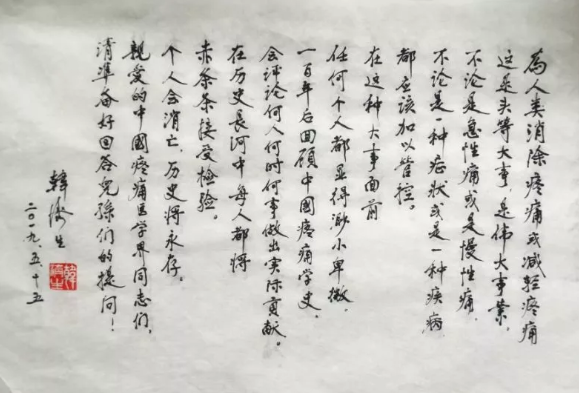 為人类消除疼痛或减轻疼痛
这是头等大事,是伟大事業,
不论是急性痛或是慢性痛,
不论是一种症狀或是一种疾病
都应该加以管控。
在这种大事面前
任何个人都显得渺小卑微,
一百年后回顾中國疼痛学史,
会评论何人何时何事做出实际贡献。
在历史長河中每人都将
赤条条接受檢验。
个人会消亡,历史将永存,
親爱的中國疼痛医学界同志们,
请準备好回答兒孫们的提问!
韓濟生
二〇一九.五.十五
韓濟生